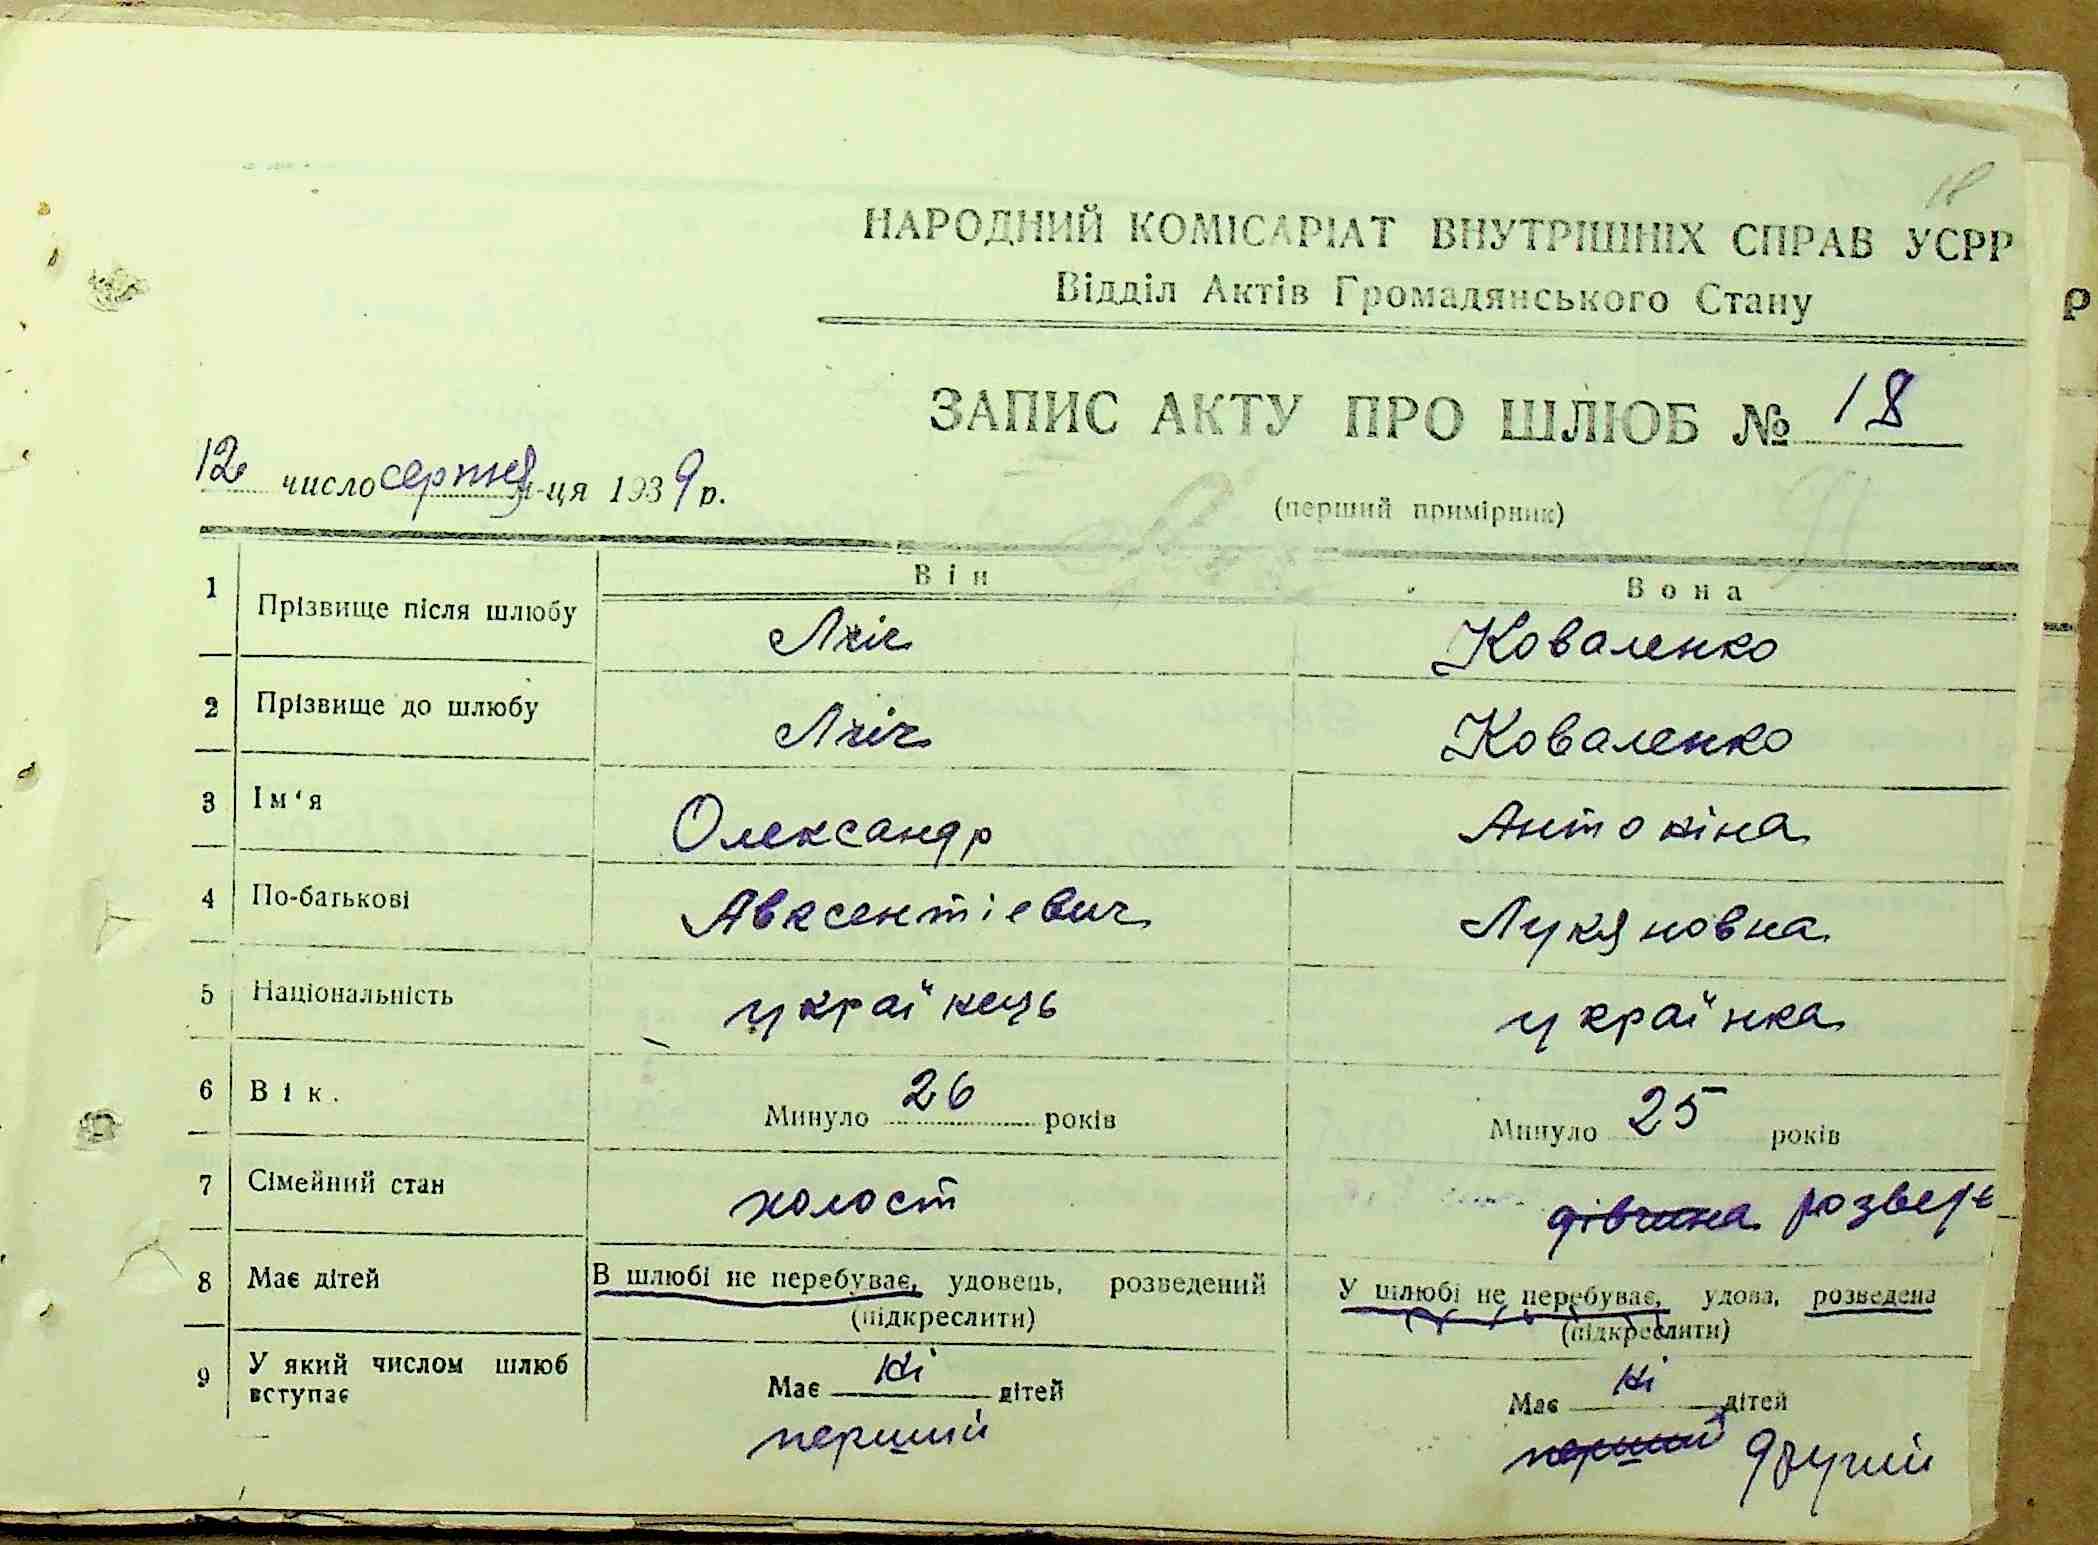 18
НАРОДНИЙ КОМІСАРІАТ ВНУТРІШНІХ СПРАВ УСРР
Відділ Актів Громадянського Стану
Р
ЗАПИС АКТУ ПРО ШЛЮБ № 18
12 число серпня м-ця 1939 р.
(перший примірник)
Він Вона
1 Прізвище після шлюбу Коваленко
2 Прізвище до шлюбу Коваленко
3 Ім'я Олександр Антоніна
4 По-батькові Авксентіевич Лукяновна
5 Національність українець українка
6 Вік. Минуло 26 років Минуло 25 років
7 Сімейний стан холост дівчина розвед
8 Має дітей В шлюбі не перебуває, удовець, розведений У шлюбі не перебуває, удова, розведена
(підкреслити) (підкреслити)
9 У який числом шлюб вступає Має ні дітей Має ні дітей
перший перший другий